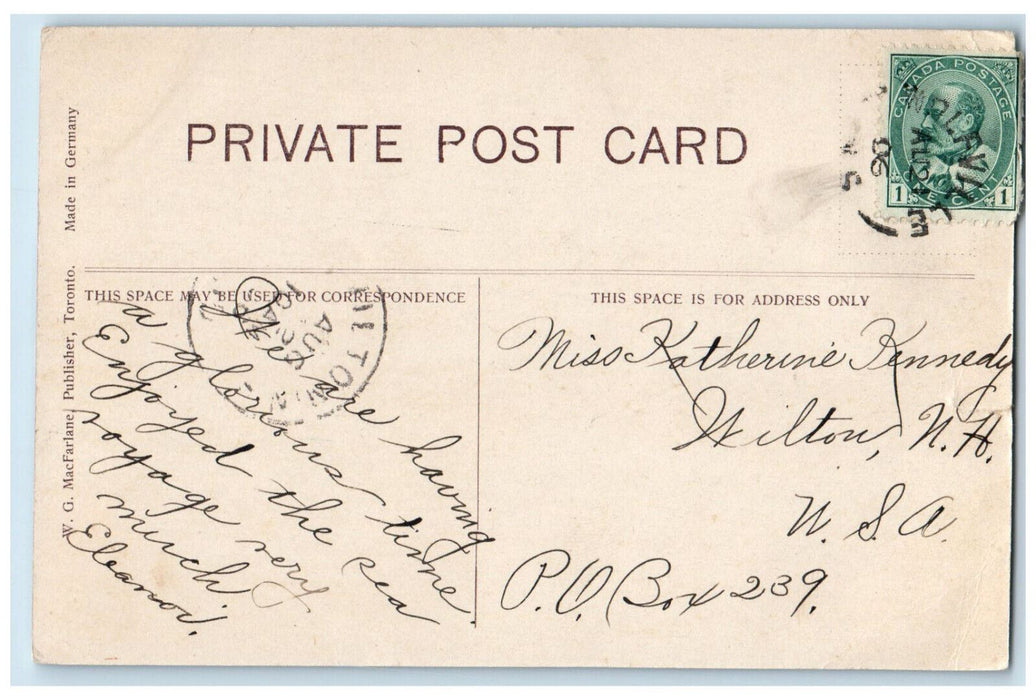 PRIVATE POST CARD
CANADA POSTAGE
1 ONE CENT 1
AU 24
06
N S
THIS SPACE MAY BE USED FOR CORRESPONDENCE
We are having
a glorious time
Enjoyed the sea
voyage very
much
Eleanor.
THIS SPACE IS FOR ADDRESS ONLY
Miss Katherine Kennedy
Wilton, N.H.
U.S.A.
P.O. Box 239.
W. G. MacFarlane, Publisher, Toronto. Made in Germany